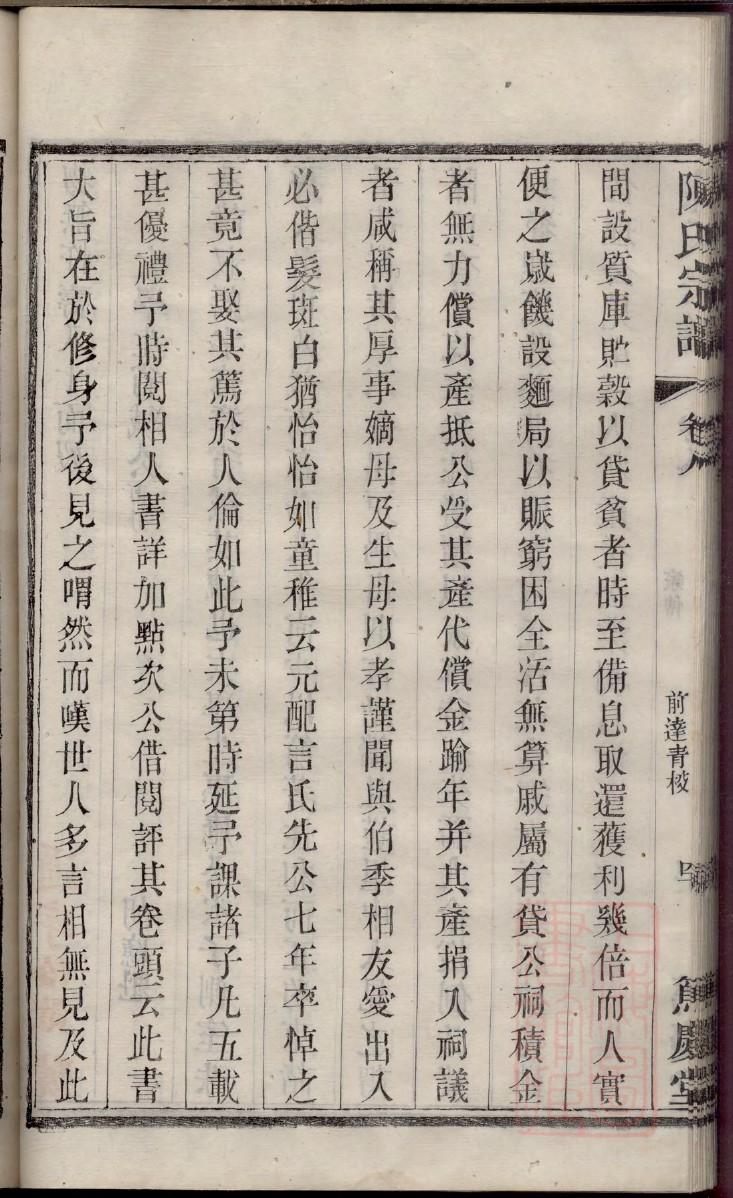 陳氏宗譜
卷八
前達青棱
間設質庫貯穀以貸貧者時至備息取還獲利幾倍而人實
便之歲饑設麵局以賑窮困全活無算戚屬有貸公祠積金
者無力償以產抵公受其產代償金踰年并其產捐入祠議
者咸稱其厚事嫡母及生母以孝謹聞與伯季相友愛出入
必偕髮斑白猶怡怡如童稚云元配言氏先公七年卒悼之
甚竟不娶其篤於人倫如此予未第時延予課諸子凡五載
甚優禮予時閱相人書詳加點次公借閱評其卷頭云此書
大旨在於修身予後見之喟然而嘆世人多言相無見及此